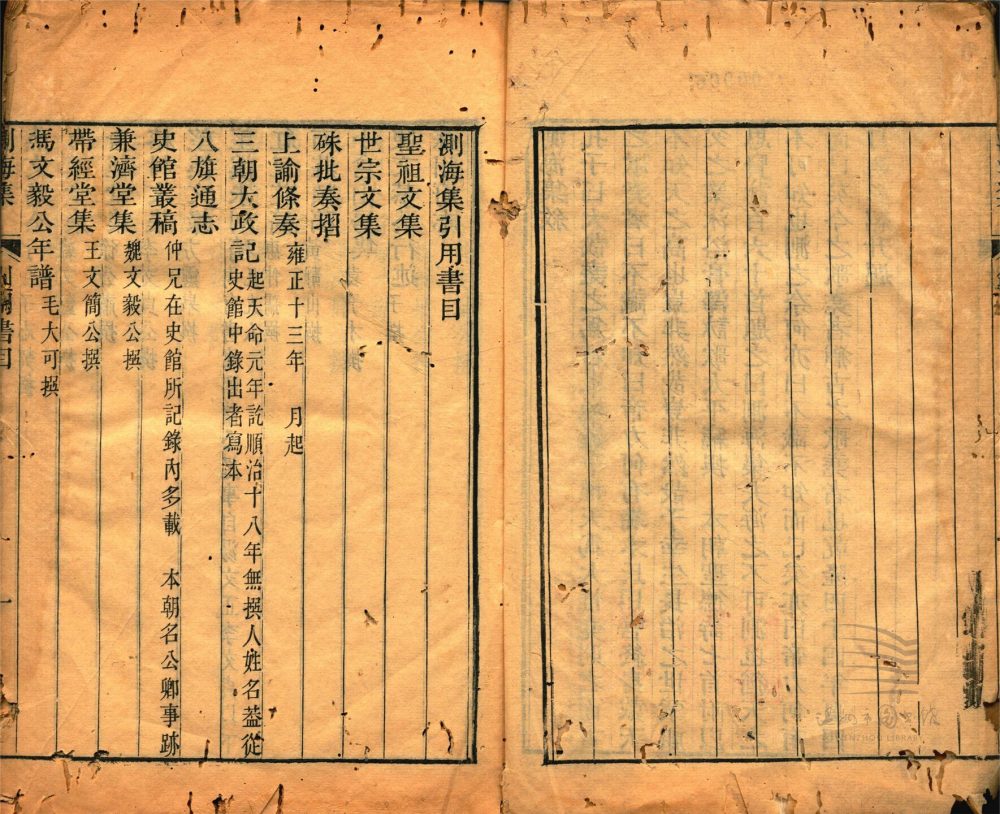 測海集引用書目
聖祖文集
世宗文集
硃批奏摺
上諭條奏 雍正十三年 月起
三朝大政記 起天命元年訖順治十八年無撰人姓名葢從
史館中錄出者寫本
八旗通志
史館叢稿 仲兄在史館所記錄內多載 本朝名公卿事跡
兼濟堂集 魏文毅公撰
帶經堂集 王文簡公撰
馮文毅公年譜 毛大可撰
測海集 引用書目 一
溫州市圖書館
WENZHOU LIBRARY